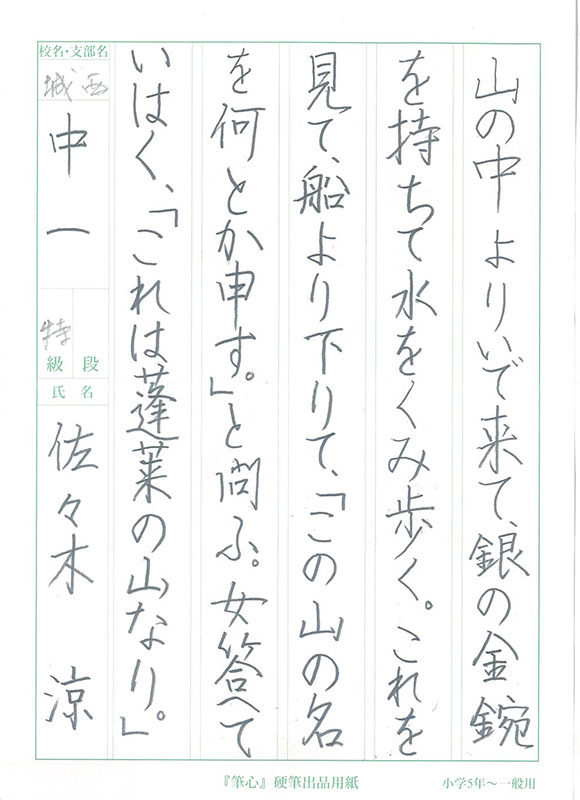 山の中よりいで来て、銀の金鋺
を持ちて水をくみ歩く。これを
見て、船より下りて、「この山の名
を何とか申す。」と問ふ。女答へて
いはく、「これは蓬莱の山なり。」
校名・支部名
城西
中一
特
級段
氏名
佐々木 涼
『筆心』硬筆出品用紙
小学5年〜一般用